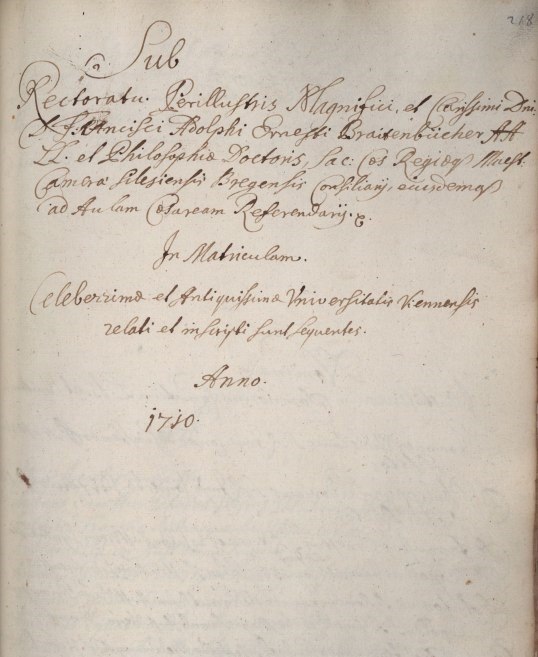 218
Sub
Rectoratu Perillustris Magnifici, et Clarissimi Dni
D. Francisci Adolphi Ernesti Braitenbücher AA
LL. et Philosophiæ Doctoris, Sac: Cæs Regiæq Maest.
Cameræ Silesiensis Bregensis Consiliarij, eiusdemq
ad Aulam Cæsaream Referendarij.
In Matriculam.
Celeberrimæ et Antiquissimæ Universitatis Viennensis
relati et inscripti sunt sequentes.
Anno.
1710.